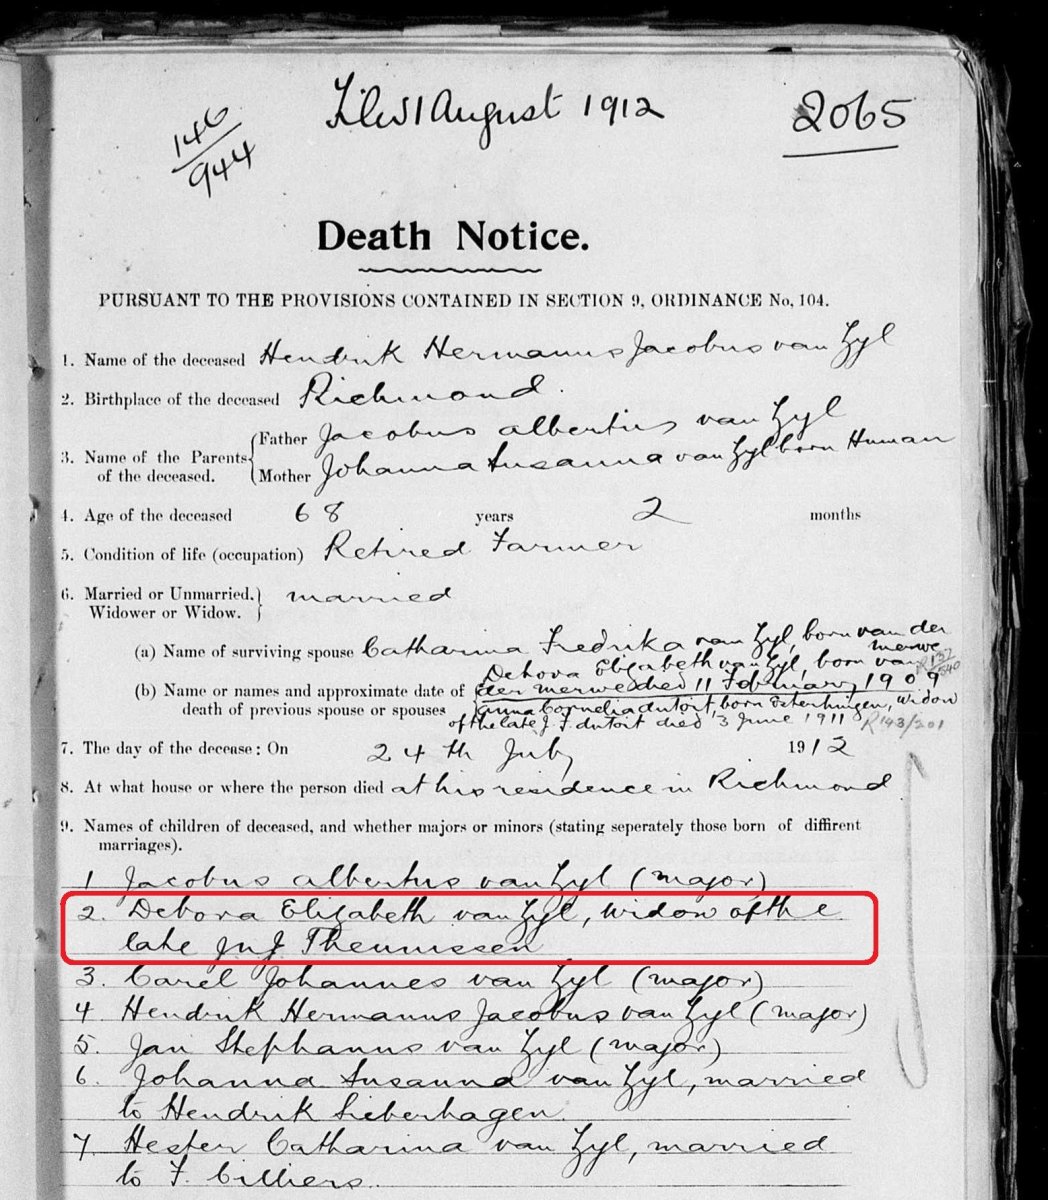 146
944
Filed 1 August 1912
2065
Death Notice.
PURSUANT TO THE PROVISIONS CONTAINED IN SECTION 9, ORDINANCE No, 104.
1. Name of the deceased Hendrik Hermanus Jacobus van Zyl
2. Birthplace of the deceased Richmond.
3. Name of the Parents of the deceased. Father Jacobus albertus van Zyl
Mother Johanna Susanna van Zyl born Human
4. Age of the deceased 68 years 2 months
5. Condition of life (occupation) Retired Farmer
6. Married or Unmarried, Widower or Widow. married
(a) Name of surviving spouse Catharina Fredrika van Zyl, born van der merwe
(b) Name or names and approximate date of death of previous spouse or spouses Debora Elizabeth van Zyl, born van
der merwe died 11 February 1909
anna Cornelia dutoit, born Esterhuizen, widow
of the late J. F. dutoit died 3 June 1911 R143/201
7. The day of the decease: On 24th July 1912
8. At what house or where the person died at his residence in Richmond
9. Names of children of deceased, and whether majors or minors (stating seperately those born of diffirent
marriages).
1 Jacobus albertus van Zyl (major)
2. Debora Elizabeth van Zyl, widow of the
late Theunissen
3. Carel Johannes van Zyl (major)
4 Hendrik Hermanus Jacobus van Zyl (major)
5. Jan Stephanus van Zyl (major)
6. Johanna Susanna van Zyl, married
to Hendrik Lieberhagen
7 Hester Catharina van Zyl, married
to F. Cilliers.